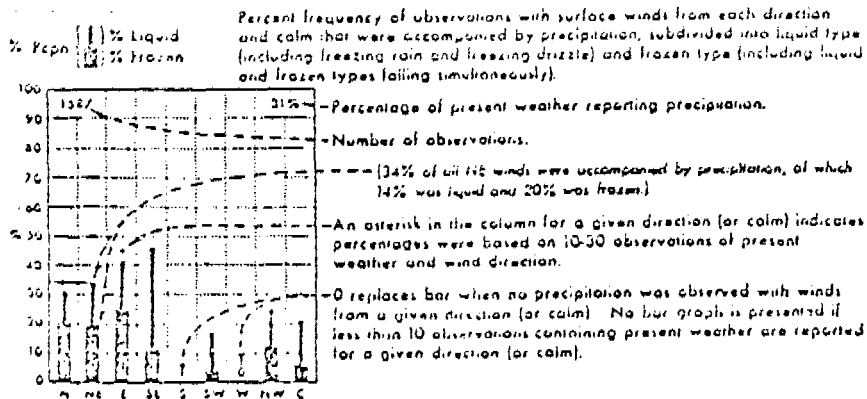 Percent frequency of observations with surface winds from each direction
and calm that were accompanied by precipitation, subdivided into liquid type
(including freezing rain and freezing drizzle) and frozen type (including liquid
and frozen types falling simultaneously).
% Pcpn % Liquid
% Frozen
31% Percentage of present weather reporting precipitation.
Number of observations.
(34% of all NE winds were accompanied by precipitation, of which
14% was liquid and 20% was frozen.)
An asterisk in the column for a given direction (or calm) indicates
percentages were based on 10-30 observations of present
weather and wind direction.
0 replaces bar when no precipitation was observed with winds
from a given direction (or calm). No bar graph is presented if
less than 10 observations containing present weather are reported
for a given direction (or calm).
100
90
80
70
60
%
50
40
30
20
10
0
N NE E SE S SW W NW C